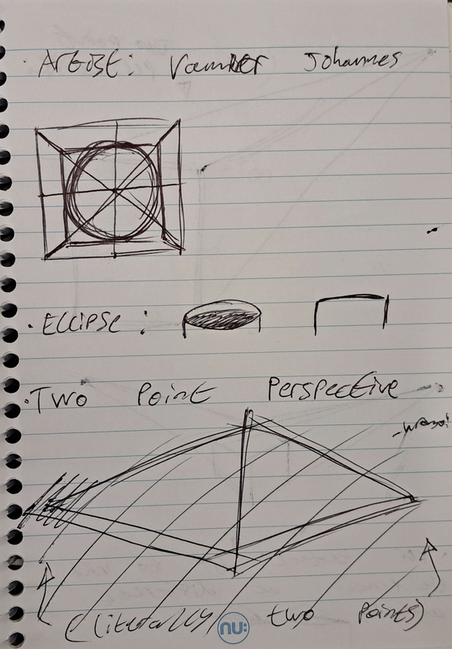 · Artist: Vermeer Johannes
· Ellipse :
· Two Point Perspective
(literally two Points)
nu: